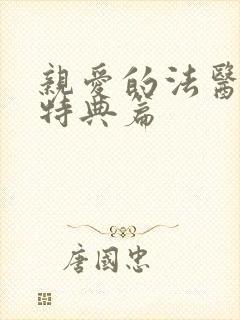 親愛的法醫
特典篇
唐國忠